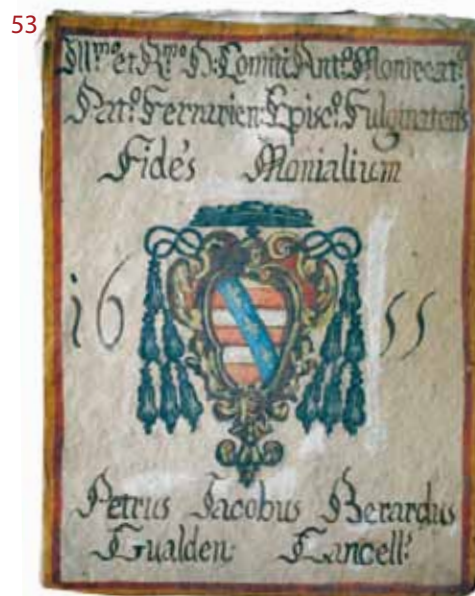 53
Ill.mo et R.mo D: Comiti Ant.o Montecat.o
Pat.o Ferrarien: Episc.o Fulginatens
Fides Monialium
16 55
Petrus Jacobus Berardus
Gualden: Cancell.s